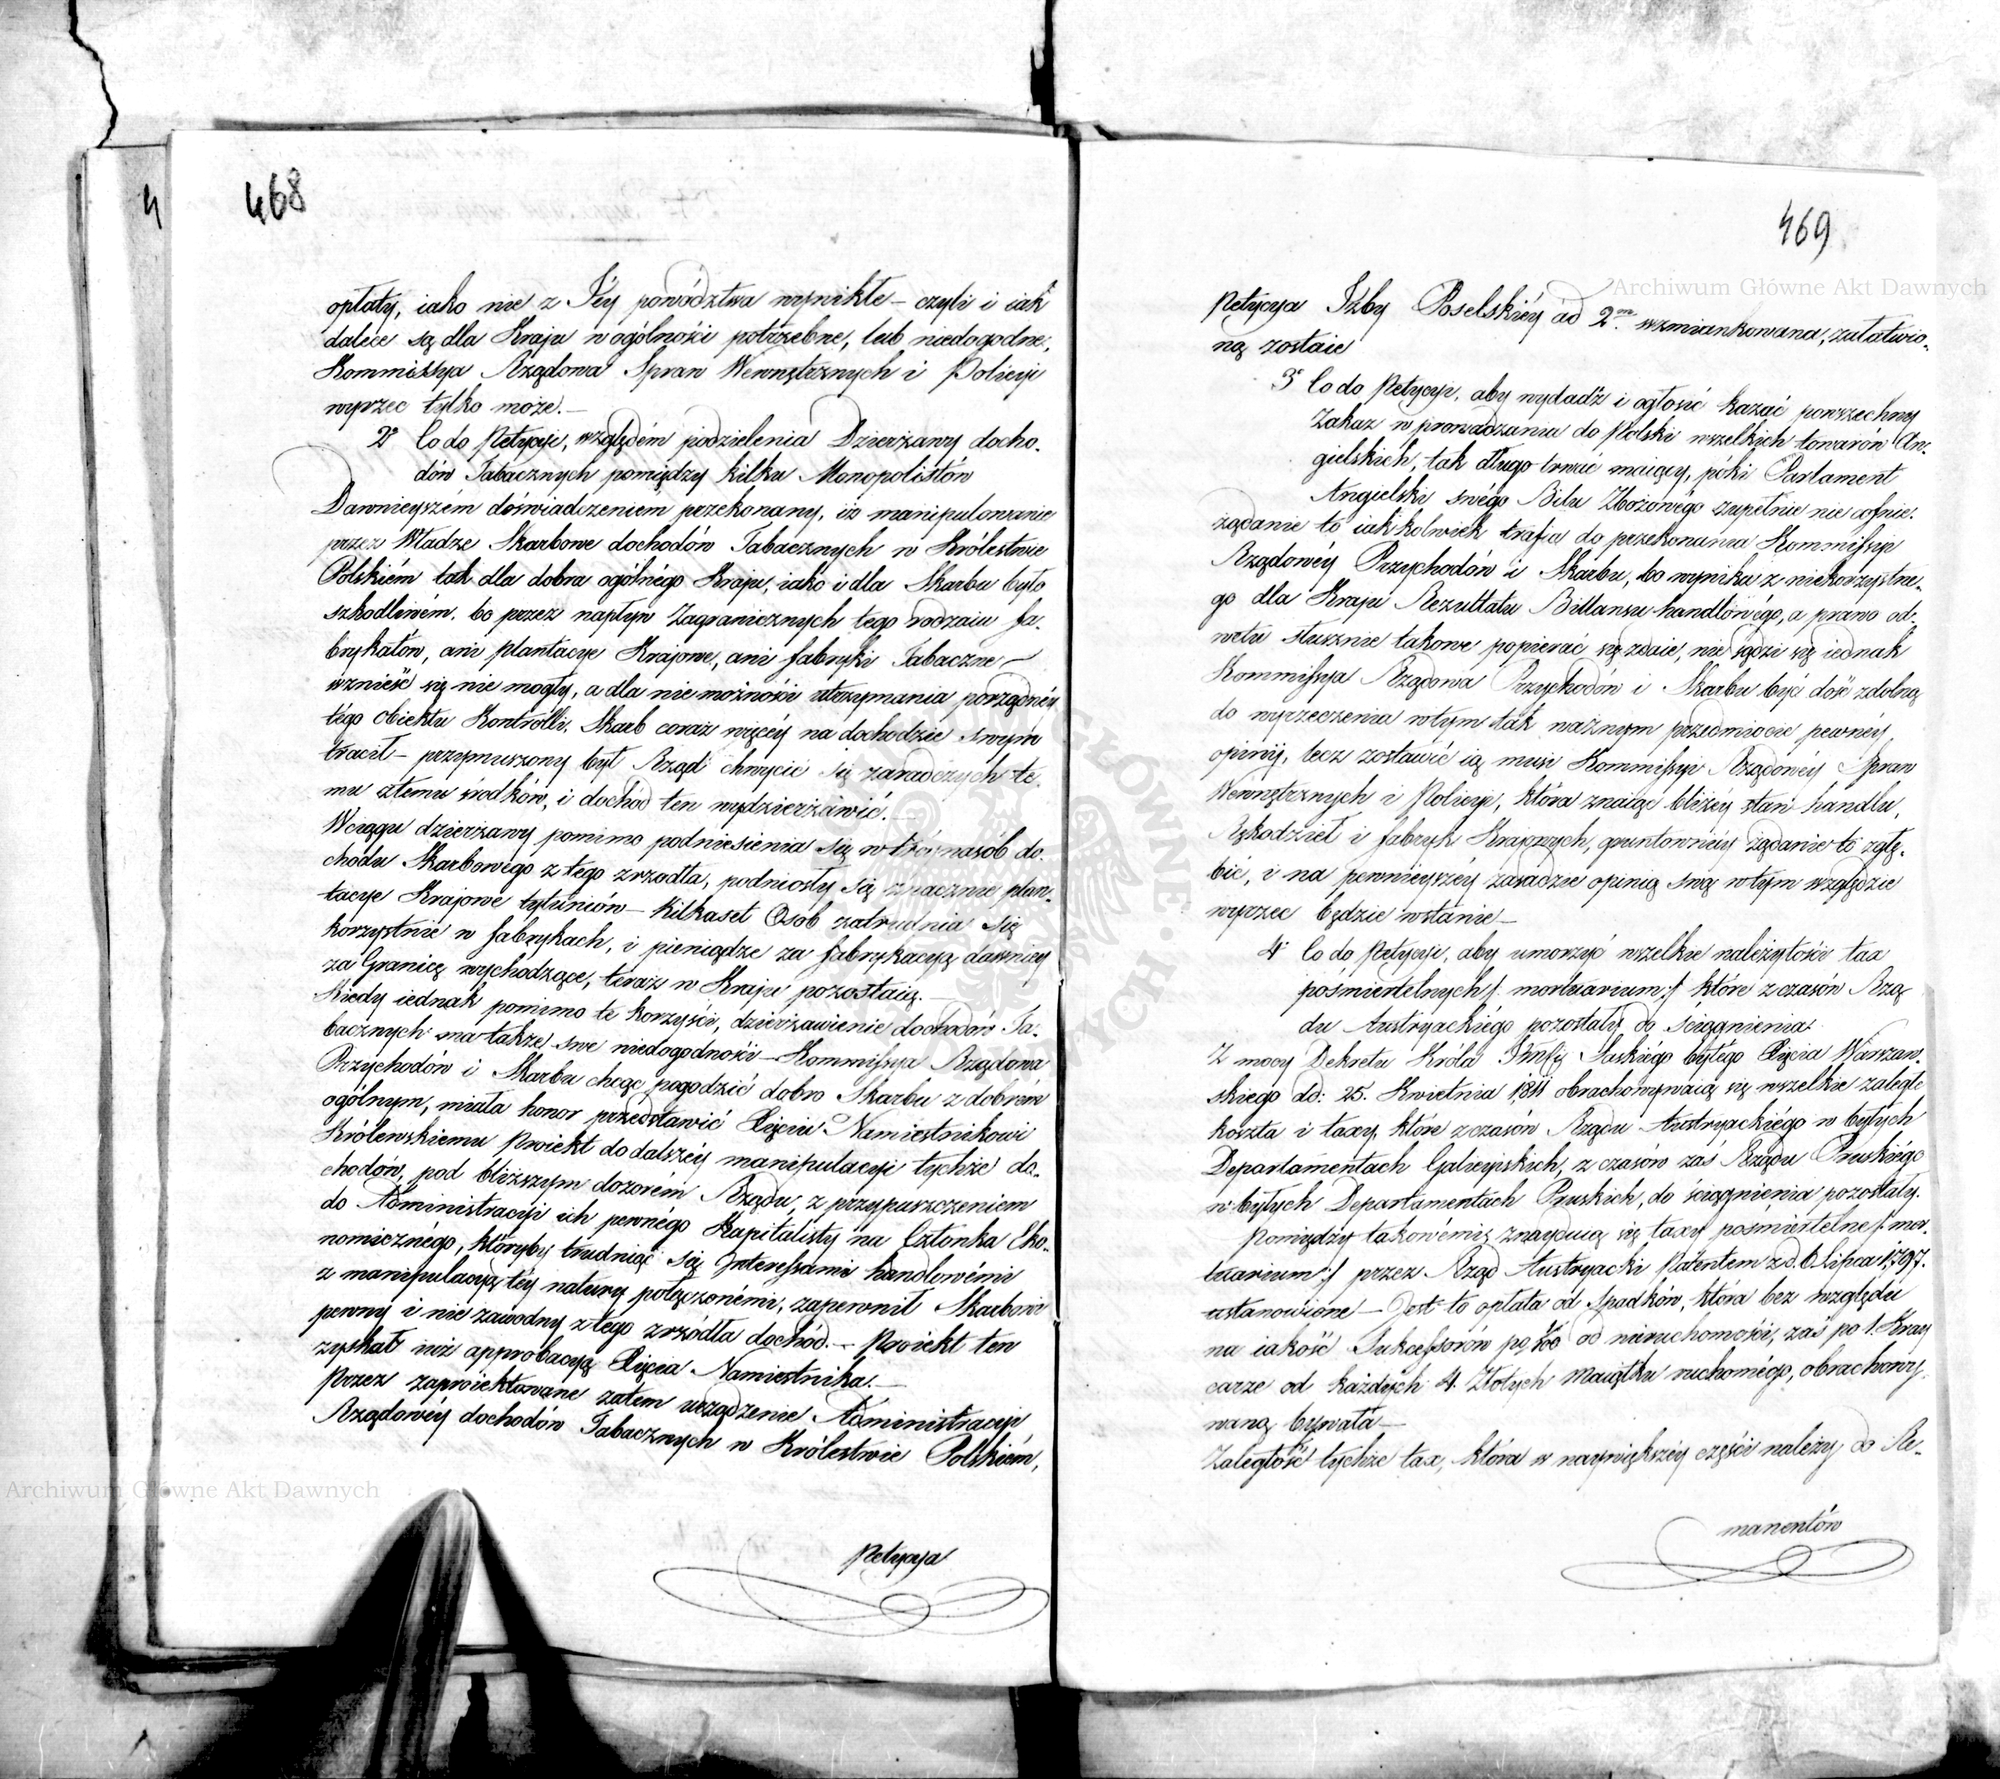 468
opłaty, iako nie z Jéy powództwa wynikłe – czyli i iak
dalece są dla Kraju w ogólności potrzebne, lub niedogodne,
Kommissya Rządowa Spraw Wewnętrznych i Policyi
wyrzec tylko może. –
2º Co do Petycyi, względém podzielenia Dzierżawy docho-
dów Tabacznych pomiędzy kilku Monopolistów
Dawnieyszém doświadczeniem przekonany, iż manipulowanie
przez Władze Skarbowe dochodów Tabacznych w Królestwie
Polskiém tak dla dobra ogólnégo Kraju, iako i dla Skarbu było
szkodliwém, bo przez napływ Zagranicznych tego rodzaiu fa-
brykatów, ani plantacye Krajowe, ani fabryki Tabaczne –
wznieść się nie mogły, a dla niemożności utrzymania porządnéy
tégo obiektu Kontrolli, Skarb coraz więcéy na dochodzie swym
tracił – przymuszony był Rząd chwycić się zaradczych te-
mu złemu środków, i dochód ten wydzierżawić. –
Wciągu dzierżawy pomimo podniesienia się w tróynasób do-
chodu Skarbowego z tego zrzodła, podniosły się znacznie plan-
tacye Krajowe tytuniów – kilkaset Osób zatrudnia się
korzystnie w fabrykach, i pieniądze za fabrykacyą dawniéy
za Granicę wychodzące, teraz w Kraju pozostaią. –
Kiedy iednak pomimo te korzyści, dzierżawienie dochodów Ta-
bacznych ma także swe niedogodności – Kommissya Rządowa
Przychodów i Skarbu chcąc pogodzić dobro Skarbu z dobrém
ogólnym, miała honor przedstawić Xięciu Namiestnikowi
Królewskiemu Proiekt do dalszéy manipulacyi tychże do-
chodów, pod bliższym dozorem Rządu, z przypuszczeniem
do Administracyi ich pewnégo Kapitalisty na Członka Eko-
nomicznégo, któryby trudniąc się Interessami handlowémi
z manipulacyą téy natury połączonémi, zapewnił Skarbowi
pewny i nie zawodny z tego zrzódła dochód. – Proiekt ten
zyskał iuż approbacyą Xięcia Namiestnika. –
Przez zaproiektowane zatém urządzenie Administracyi
Rządowéy dochodów Tabacznych w Królestwie Polskiém,
Petycya
469
Petycya Izby Poselskiéy ad 2m wzmiankowana, załatwio-
ną zostaie
3º Co do Petycyi, aby wydadź i ogłosić kazać powszechny
Zakaz wprowadzania do Polski wszelkich towarów An-
gielskich, tak długo trwać maiący, póki Parlament
Angielski swégo Bilu Zbożowégo zupełnie nie cofnie.
żądanie to iakkolwiek trafia do przekonania Kommissyi
Rządowéy Przychodów i Skarbu, bo wynika z niekorzystne-
go dla Kraju Rezultatu Billansu handlowégo, a prawo od-
wetu słusznie takowe popierać się zdaie, nie sądzi się iednak
Kommissya Rządowa Przychodów i Skarbu być dość zdolną
do wyrzeczenia w tym tak ważnym przedmiocie pewnéy
opinii, lecz zostawić ią musi Kommissyi Rządowéy Spraw
Wewnętrznych i Policyi, która znaiąc bliżéy stan handlu,
Rękodzieł i fabryk Krajowych, gruntowniéy żądanie to zgłę-
bić, i na pewnieyszéy zasadzie opinią swą w tym względzie
wyrzec będzie wstanie –
4º Co do Petycyi, aby umorzyć wszelkie należytości tax
pośmiertelnych /: mortuarium :/ które z czasów Rzą
du Austryackiégo pozostały do ściągnienia.
Z mocy Dekretu Króla Jmci Saskiégo byłégo Xięcia Warszaw-
skiego dd: 25. Kwietnia 1811 obrachowywaią się wszelkie zaległe
koszta i taxy, które z czasów Rządu Austryackiégo w byłych
Departamentach Galicyiskich, z czasów zaś Rządu Pruskiégo
w byłych Departamentach Pruskich, do ściągnienia pozostały.
Pomiędzy takowémi znayduią się taxy pośmiertelne /: mor-
tuarium :/ przez Rząd Austryacki Patentem z d. 6. Lipca 1797.
ustanowione – Jest to opłata od Spadków, która bez względu
na iakość Sukcessorów po od nieruchomości, zaś po 1. Kray
carze od każdych 4. Złotych Maiątku ruchomégo, obrachowy-
waną bywała –
Zaległość tychże tax, która w naywiększéy części należy do Re-
manentów